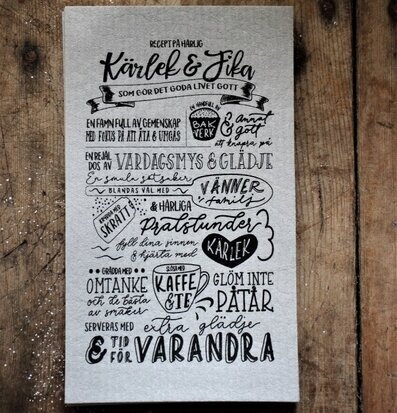 RECEPT PÅ HÄRLIG
Kärlek & Fika
SOM GÖR DET GODA LIVET GOTT
EN FAMN FULL AV GEMENSKAP
MED FOKUS PÅ ATT ÄTA & UMGÅS
EN HANDFULL AV
BAKVERK
& Annat gott
att knapra på
EN REJÄL DOS AV VARDAGSMYS & GLÄDJE
En smula sötsaker
BLANDAS VÄL MED
VÄNNER
familj
SKRATT
& HÄRLIGA
Pratstunder
fyll dina sinnen
& hjärta med
KÄRLEK
GRÄDDA MED
OMTANKE
och de bästa
av smaker
KAFFE
& TE
GLÖM INTE
PÅTÅR
SERVERAS MED extra glädje
& TID FÖR VARANDRA